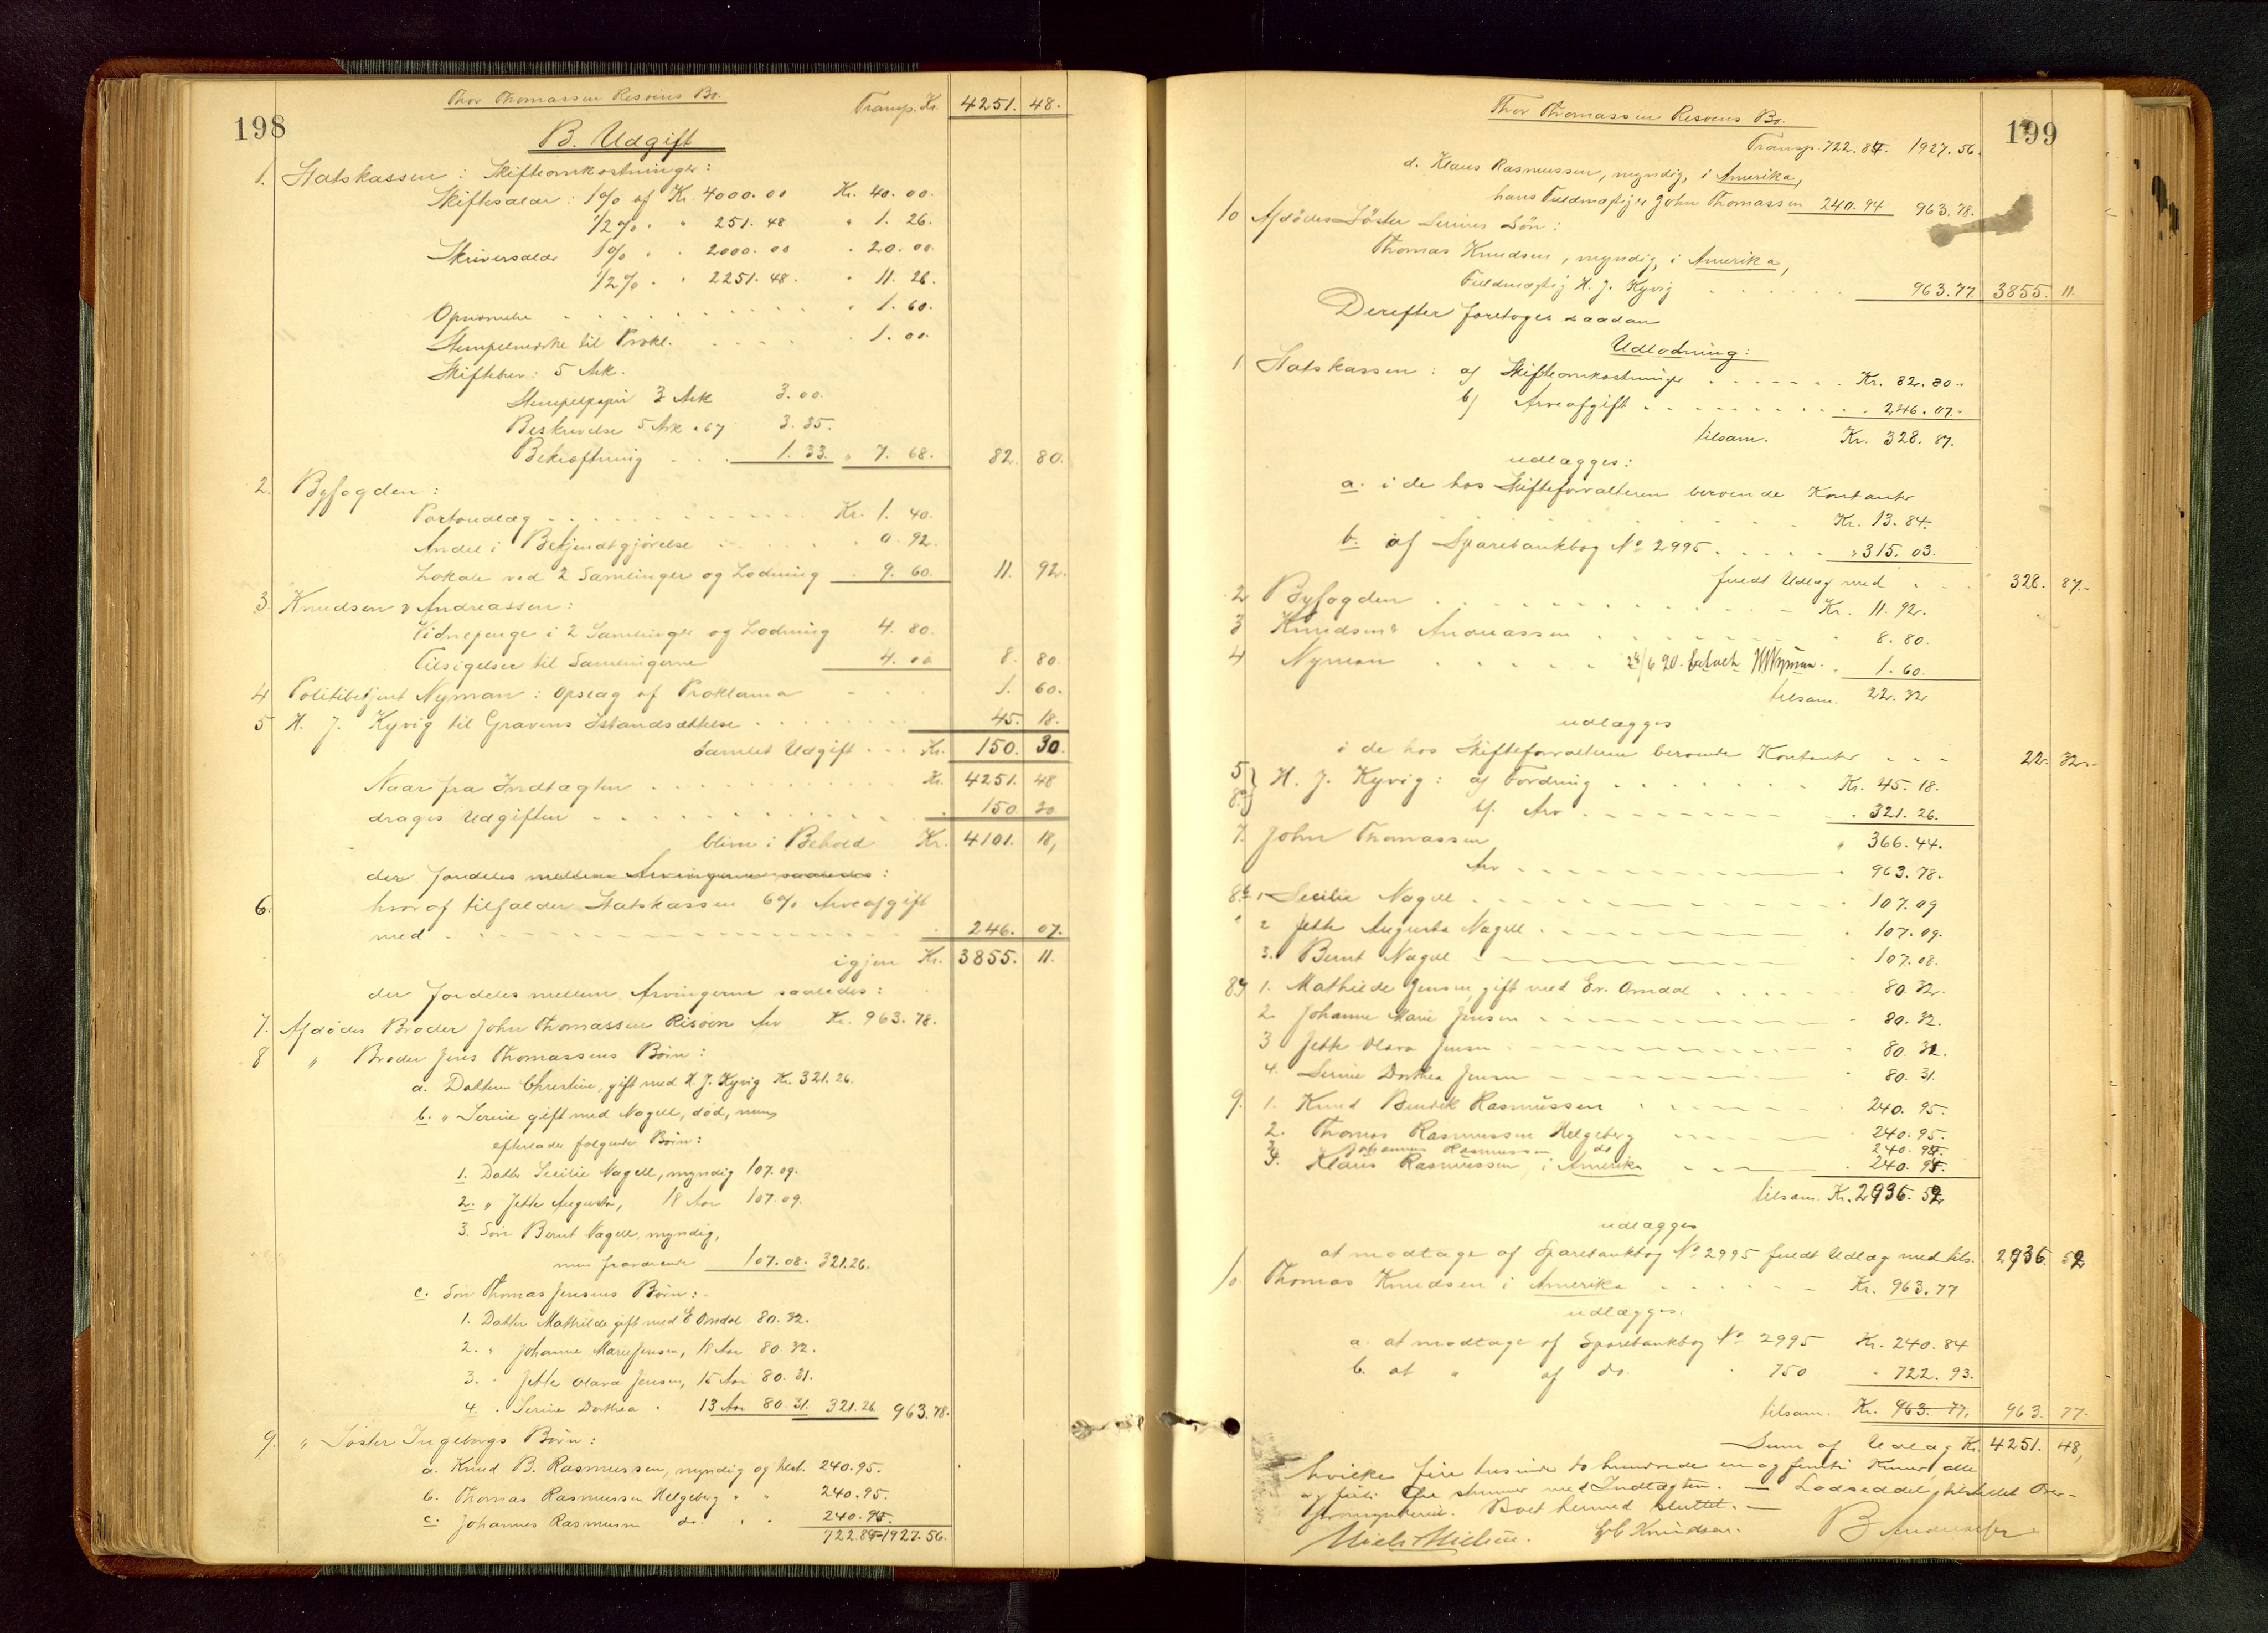 198
Thor Thomassen Risøens Bo.
Transp. Kr. 4251. 48.
B. Udgift
1. Statskassen: Skifteomkostninger:
Skiftesalær: 1% af Kr. 4000.00 Kr. 40.00.
1/2% " " 251.48 " 1. 26.
Skriversalær 1% " " 2000.00 " 20.00.
1/2% " " 2251.48. " 11. 26.
Opnævnelse " 1. 60.
Stempelmærke til Prokl. " 1. 00.
Skiftebrev: 5 Ark.
Stempelpapir 3 Ark 3.00.
Beskrivelse 5 Ark a 67 3.35.
Bekræftning 1.33. " 7. 68. 82. 80.
2. Byfogden:
Portoudlæg Kr. 1. 40.
Andel i Bekjendtgjørelse " 0. 92.
Lokale ved 2 Samlinger og Lodning " 9. 60. 11. 92.
3. Knudsen & Andreassen:
Vidnepenge i 2 Samlinger og Lodning 4. 80.
Tilsigelser til Samlingerne 4. 00 8. 80.
4 Politibetjent Nyman: Opslag af Proklama 1. 60.
5 H. J. Kyvig til Gravens Istandsættelse 45. 18.
Samlet Udgift Kr. 150. 30.
Naar fra Indtægten Kr. 4251. 48
drages Udgiften " 150. 30
bliver i Behold Kr. 4101. 18,
der fordeles mellem Arvingerne saaledes:
6. hvoraf tilfalder Statskassen 6% Arveafgift
med 246. 07.
igjen Kr. 3855. 11.
der fordeles mellem Arvingerne saaledes:
7. Afdødes Broder John Thomassen Risøen Arv Kr. 963.78.
8 " Broder Jens Thomassens Børn:
a. Datteren Christine, gift med H. J. Kyvig Kr. 321.26.
b. " Serine gift med Nagell, død, men
efterlader følgende Børn:
1. Datter Secilie Nagell, myndig 107.09.
2. " Jette Augusta, 18 Aar 107.09.
3. Søn Bernt Nagell, myndig,
men fraværende 107.08. 321.26.
c. Søn Thomas Jensens Børn:
1. Datter Mathilde gift med E Omdal 80.32.
2. " Johanne Marie Jensen, 18 Aar 80.32.
3. " Jette Olava Jensen, 15 Aar 80.31.
4. " Serine Dorthea " 13 Aar 80.31. 321.26 963.78.
9. " Søster Ingeborgs Børn:
a. Knud B. Rasmussen, myndig og tilst. 240.95.
b. Thomas Rasmussen Helgeberg " " 240.95.
c. Johannes Rasmussen do. " " 240.94.
722.84 1927.56.
199
Thor Thomassen Risøens Bo.
Transp. 722.84. 1927.56.
d. Klaus Rasmussen, myndig, i Amerika,
hans Fuldmægtiger John Thomassen 240.94 963.78.
10 Afdødes Søster Serines Søn:
Thomas Knudsen, myndig, i Amerika,
Fuldmægtig H. J. Kyvig 963.77 3855. 11.
Derefter foretoges saadan
Udlodning:
1 Statskassen: a) Skifteomkostninger Kr. 82.80.
b) Arveafgift " 246.07.
tilsam. Kr. 328. 87.
udlægges:
a. i de hos Skifteforvalteren beroende Kontanter
Kr. 13.84.
b. af Sparebankbog No 2995 " 315. 03.
fuldt Udlæg med 328. 87.
2 Byfogden Kr. 11. 92.
3 Knudsen & Andreassen " 8. 80.
4 Nyman 28/6 20. Erholdt HNyman. " 1. 60.
tilsam. 22. 32
udlægges
i de hos Skifteforvalteren beroende Kontanter 22. 32.
5 8a} H. J. Kyvig: a) Fordring Kr. 45. 18.
b). Arv " 321. 26.
" 366. 44.
7. John Thomassen
Arv " 963. 78.
8b 1 Secilie Nagell " 107.09
" 2 Jette Augusta Nagell " 107.09.
3. Bernt Nagell " 107.08.
8c 1. Mathilde Jensen, gift med Er. Omdal 80.32.
2 Johanne Marie Jensen 80.32.
3 Jette Olava Jensen 80.31.
4. Serine Dorthea Jensen 80.31.
9. 1. Knud Bendik Rasmussen 240.95.
2. Thomas Rasmussen Helgeberg 240.95.
3. Johannes Rasmussen do 240.94.
4. Klaus Rasmussen, i Amerika 240.94.
tilsam. Kr. 2936.52
udlægges
at modtage af Sparebankbog No 2995 fuldt Udlæg med tils. 2936. 52
10. Thomas Knudsen i Amerika Kr. 963.77
udlægges.
a. at modtage af Sparebankbog No 2995 Kr. 240.84
b. at " af do. " 750 " 722.93.
tilsam. Kr. 963. 77. 963. 77.
Sum af Udlæg Kr. 4251. 48,
hvilke fire tusinde to hundrede en og femti Kroner, otte
og førti Øre stemmer med Indtægten. — Lodseddel tilstillet Over-
formynderiet. Boet hermed sluttet. —
Niels Nielsen. Knudsen. B Andreassen